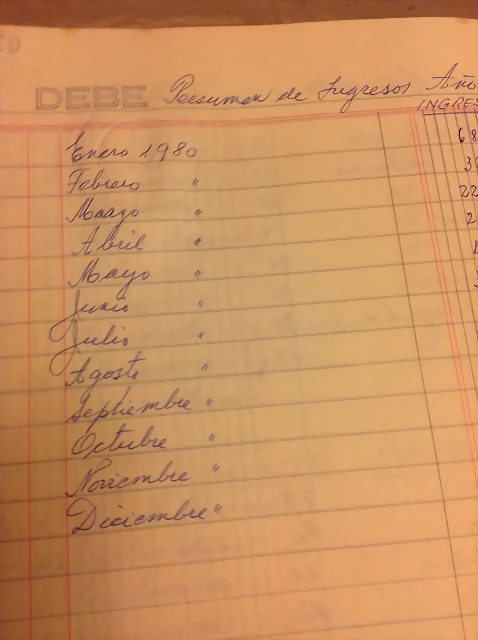 DEBE Resumen de Ingresos Año
INGRES
Enero 1980 68
Febrero " 3
Marzo " 22
Abril " 2
Mayo "
Junio "
Julio "
Agosto "
Septiembre "
Octubre "
Noviembre "
Diciembre "